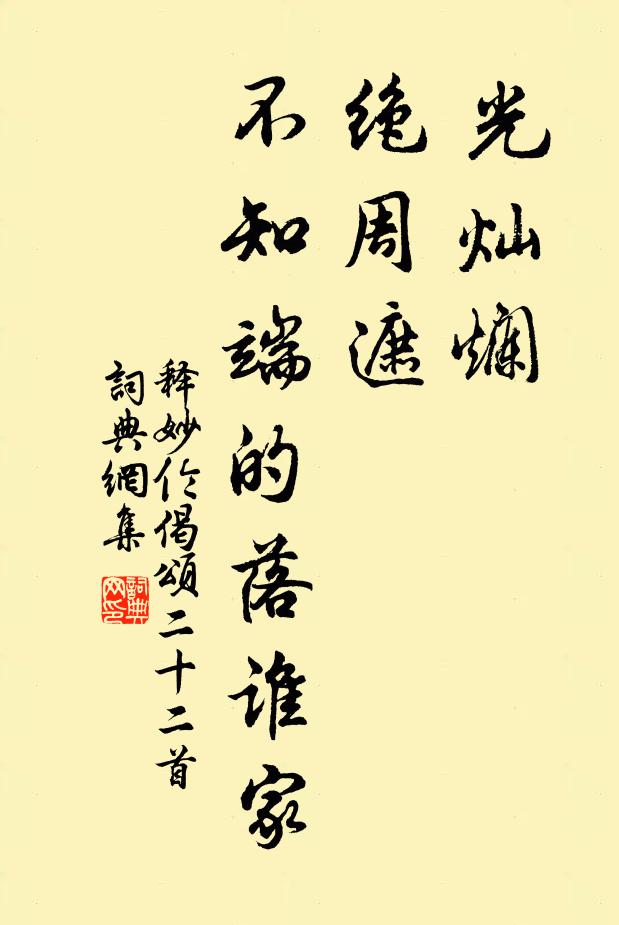 光灿爛
绝周遮
不知端的落谁家
释妙伦偈頌二十二首
詞典網集
詞典网印